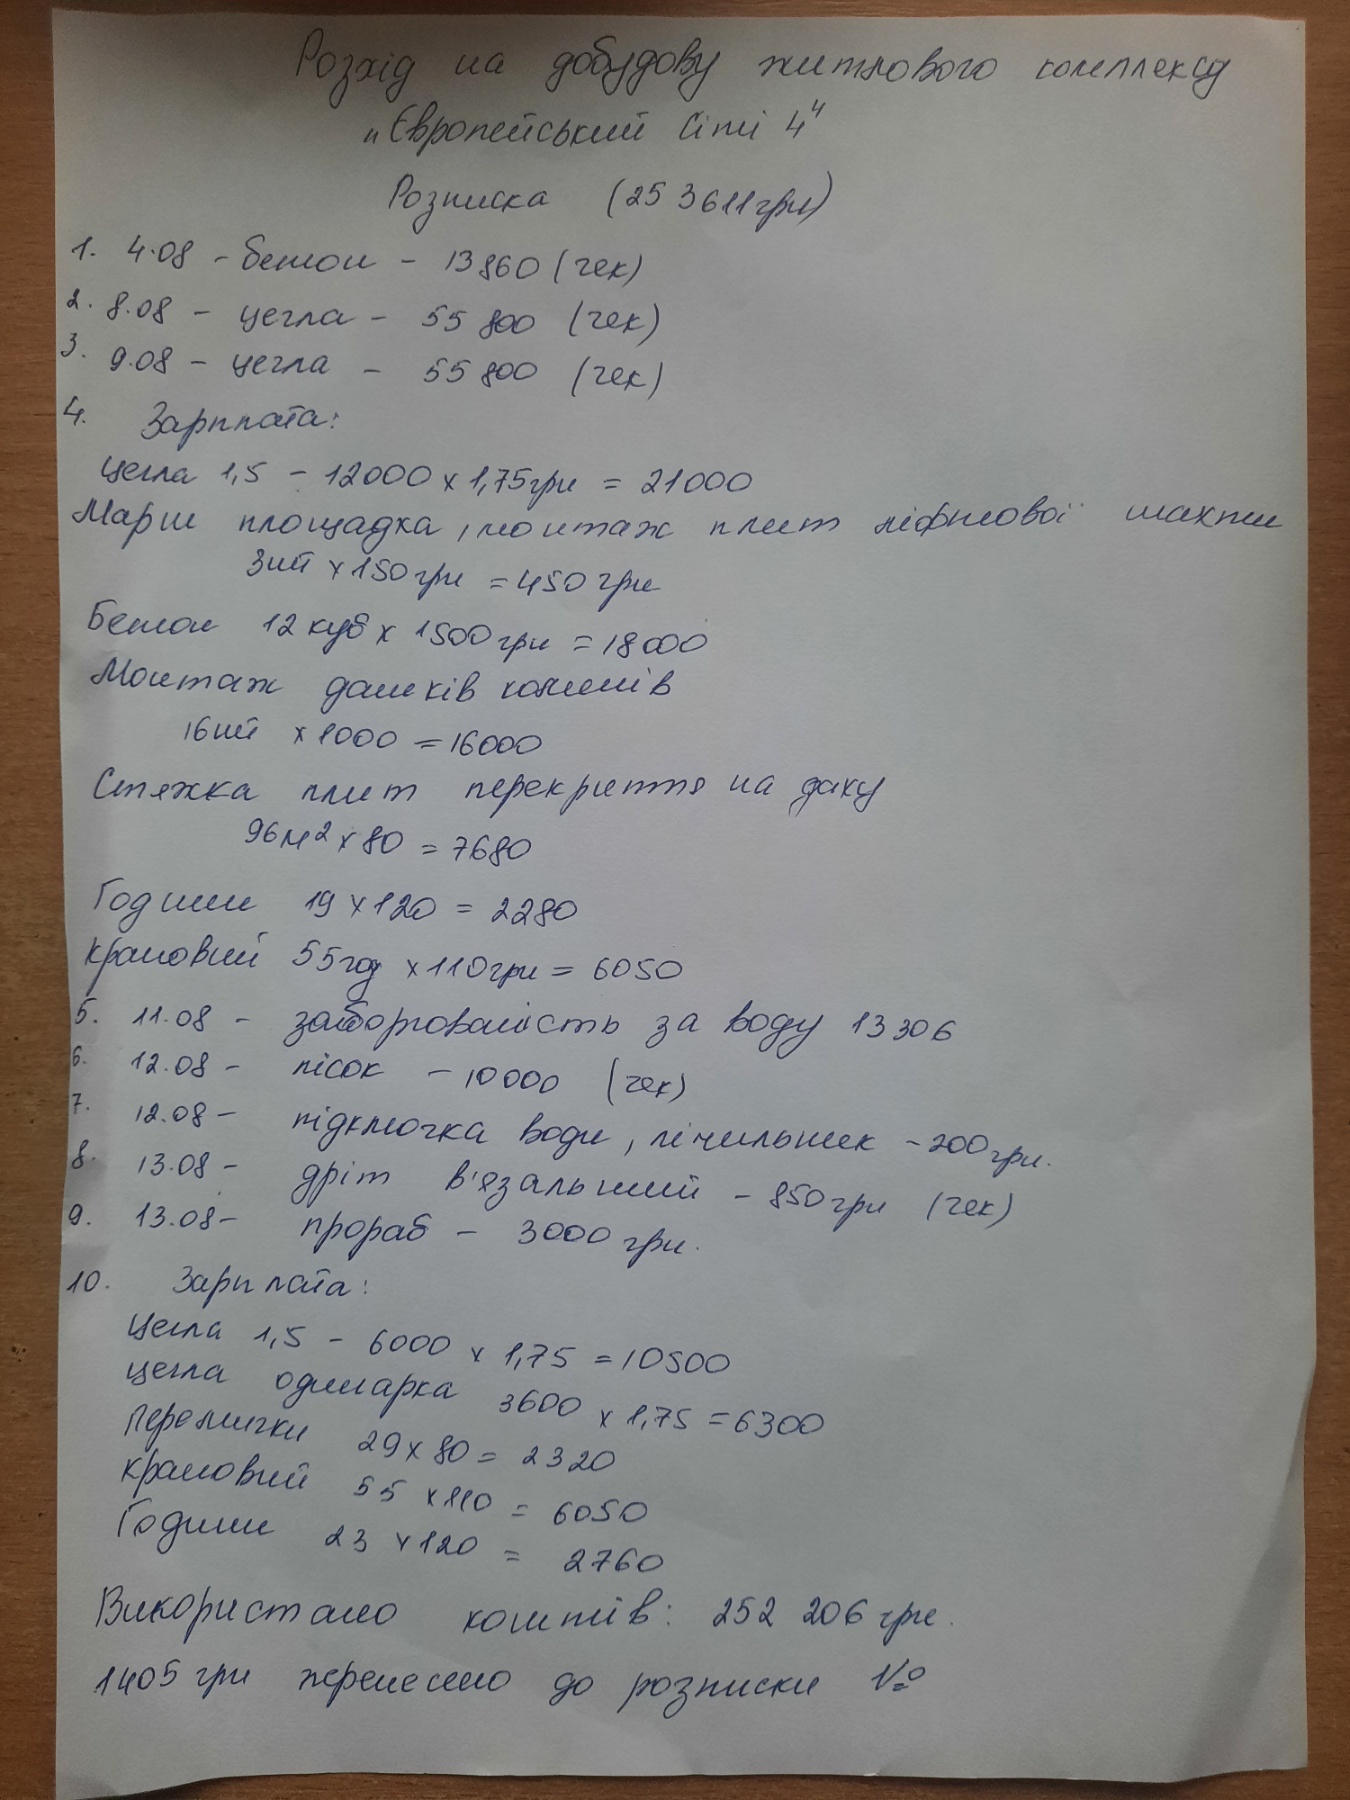 Розхід на добудову житлового комплексу
„Європейський Сіті 4"
Розписка (253611грн)
1. 4.08 - бетон - 13860 (чек)
2. 8.08 - цегла - 55 800 (чек)
3. 9.08 - цегла - 55 800 (чек)
4. Зарплата:
Цегла 1,5 - 12000 x 1,75грн = 21000
Марш площадка, монтаж плит ліфтової шахти
3шт x 150грн = 450грн
Бетон 12куб x 1500грн = 18000
Монтаж дашків коминів
16шт x 1000 = 16000
Стяжка плит перекриття на даху
96м² x 80 = 7680
Години 19 x 120 = 2280
Крановий 55год x 110грн = 6050
5. 11.08 - заборгованість за воду 13306
6. 12.08 - пісок - 10000 (чек)
7. 12.08 - підключка води, лічильник - 200грн.
8. 13.08 - дріт в'язальний - 850грн (чек)
9. 13.08 - прораб - 3000грн.
10. Зарплата:
Цегла 1,5 - 6000 x 1,75 = 10500
цегла одинарка 3600 x 1,75 = 6300
перемички 29 x 80 = 2320
крановий 55 x 110 = 6050
Години 23 x 120 = 2760
Використано коштів: 252 206грн.
1405грн перенесено до розписки №